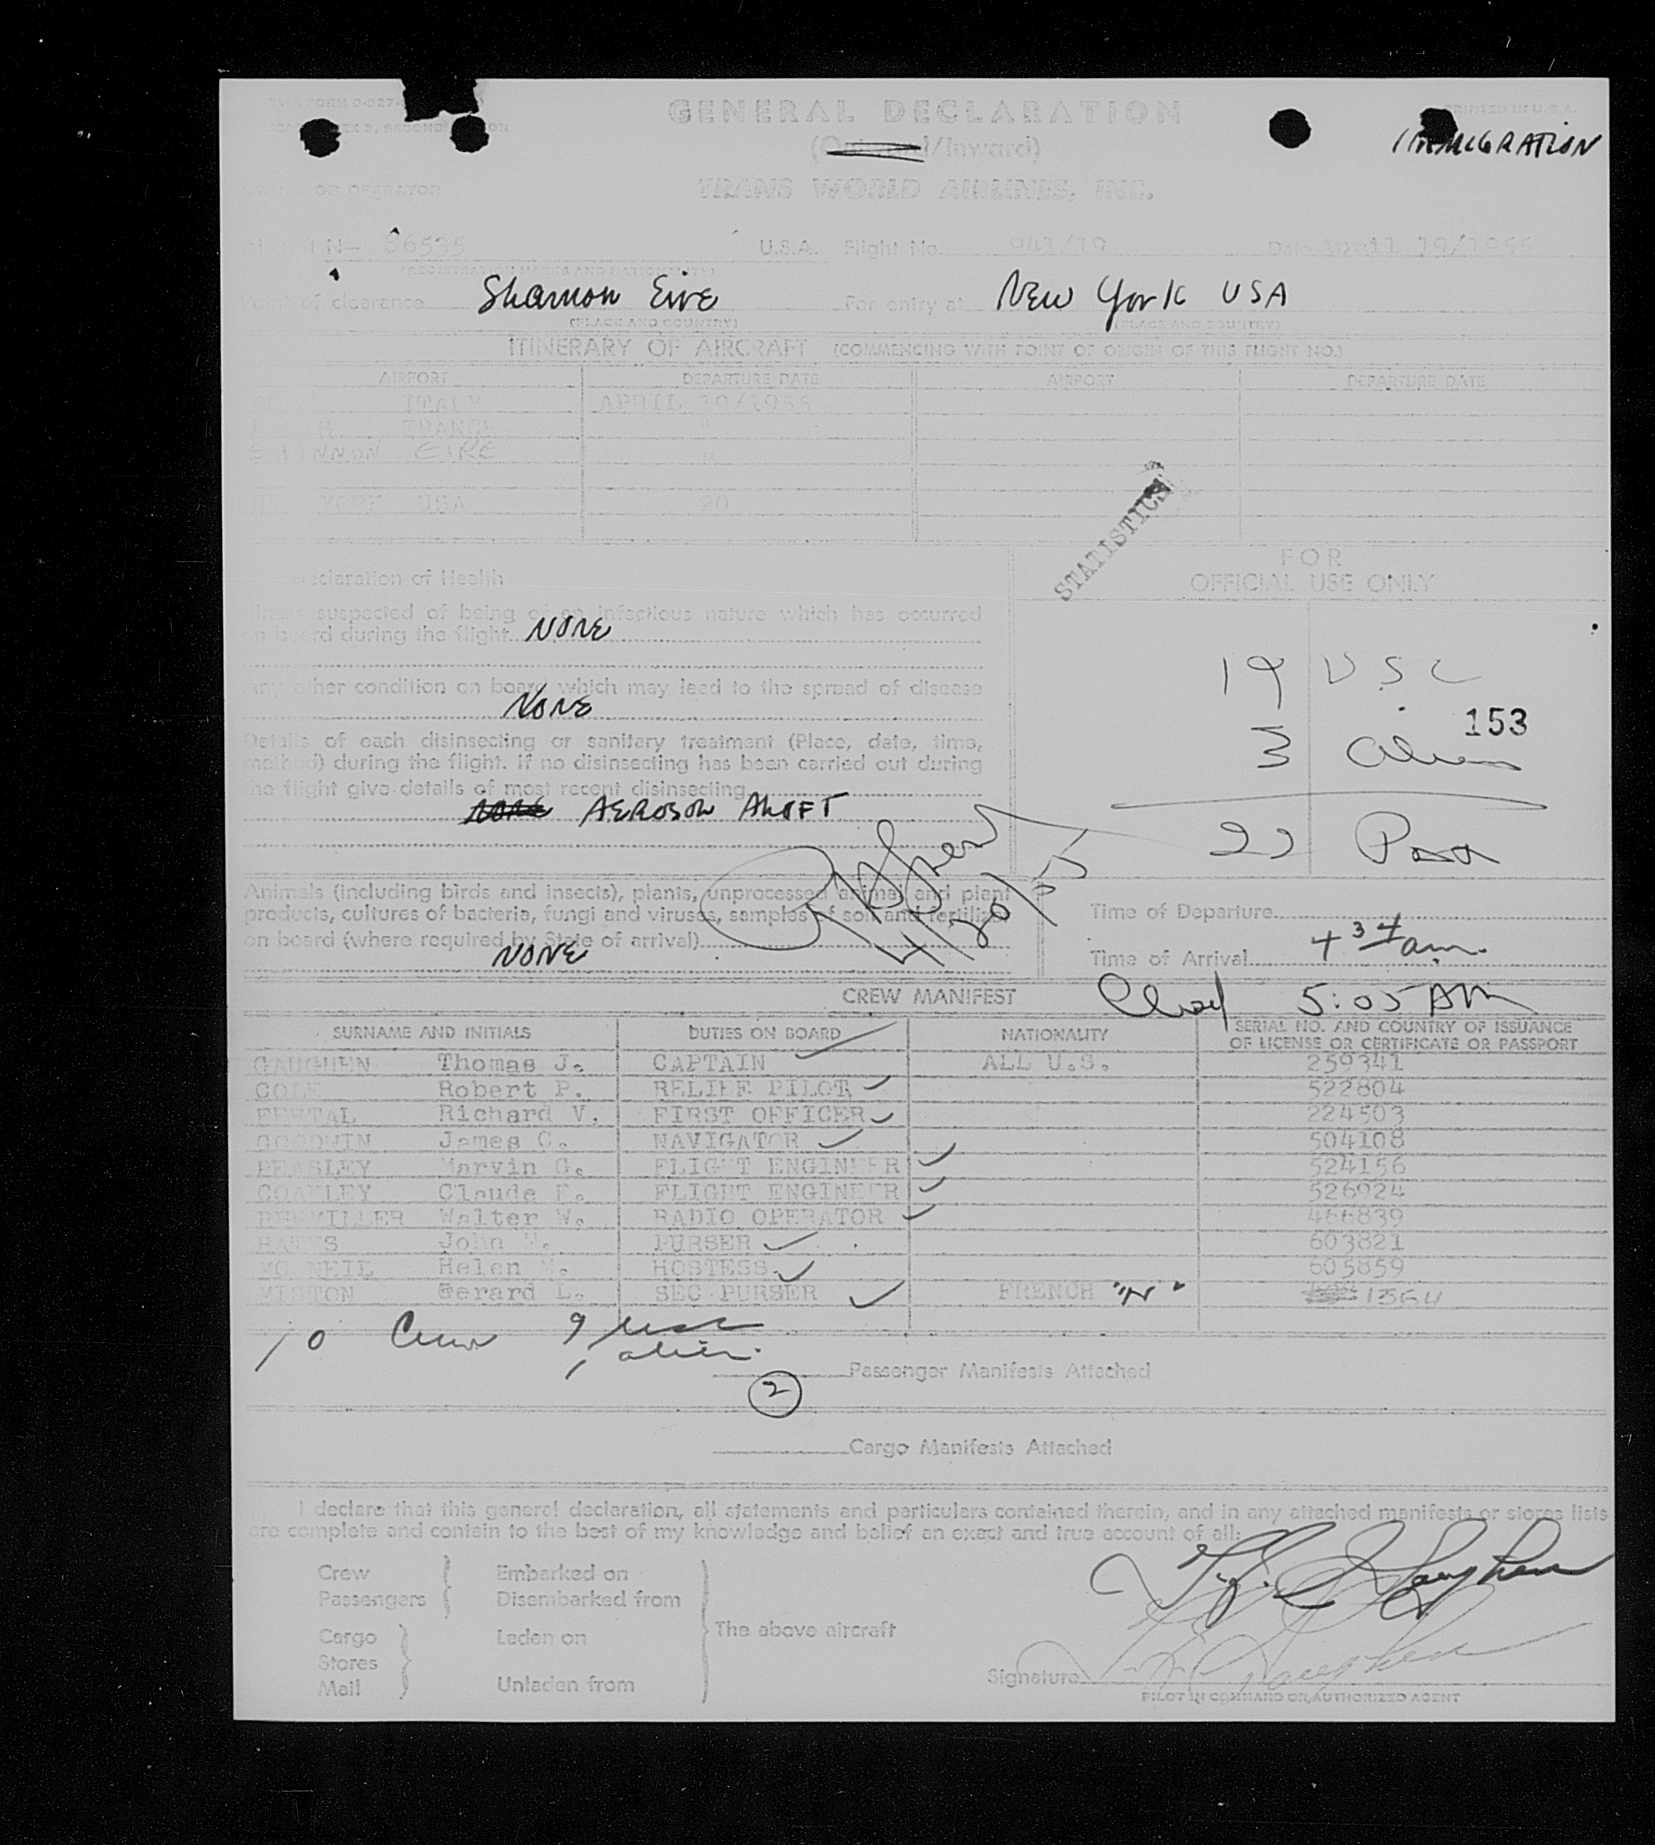 GENERAL DECLARATION
PRINTED IN U.S.A.
IMMIGRATION
/Inward)
OR OPERATOR
TRANS WORLD AIRLINES, INC.
N- 86535 U.S.A. Flight No. 941/19 Date April 19/1955
Point of clearance Shannon Eire For entry at New York USA
(PLACE AND COUNTRY) (PLACE AND COUNTRY)
ITINERARY OF AIRCRAFT (COMMENCING WITH POINT OF ORIGIN OF THIS FLIGHT NO.)
AIRPORT DEPARTURE DATE AIRPORT DEPARTURE DATE
ITALY APRIL 19/1955
FRANCE "
SHANNON EIRE "
YORK USA 20
STATISTICS
FOR
OFFICIAL USE ONLY
Declaration of Health
Illness suspected of being of an infectious nature which has occurred
on board during the flight NONE
Any other condition on board which may lead to the spread of disease
NONE
Details of each disinsecting or sanitary treatment (Place, date, time,
method) during the flight. If no disinsecting has been carried out during
the flight give details of most recent disinsecting
NONE AEROSOL ALOFT
19 USC
153
3 Alien
22 Pass
4/20/55
Animals (including birds and insects), plants, unprocessed animal and plant
products, cultures of bacteria, fungi and viruses, samples of soil and fertilizer
on board (where required by State of arrival)
NONE
Time of Departure
Time of Arrival 4 34 am.
CREW MANIFEST
5:05 AM
SURNAME AND INITIALS DUTIES ON BOARD NATIONALITY SERIAL NO. AND COUNTRY OF ISSUANCE OF LICENSE OR CERTIFICATE OR PASSPORT
GAUGHEN Thomas J. CAPTAIN ALL U.S. 259341
COLE Robert P. RELIEF PILOT 522804
Richard V. FIRST OFFICER 224503
GOODWIN James C. NAVIGATOR 504108
BEASLEY Marvin G. FLIGHT ENGINEER 524156
COAKLEY Claude F. FLIGHT ENGINEER 526924
Walter W. RADIO OPERATOR 466839
John PURSER 603821
MC NEIL Helen M. HOSTESS 605859
MISTON Gerard L. SEC PURSER FRENCH "N" 1354
10 Crew 9 usc
1 alien
Passenger Manifests Attached
2
Cargo Manifests Attached
I declare that this general declaration, all statements and particulars contained therein, and in any attached manifests or stores lists
are complete and contain to the best of my knowledge and belief an exact and true account of all:
Crew Embarked on
Passengers Disembarked from
The above aircraft
Cargo Laden on
Stores
Mail Unladen from
T. J. Gaughen
Signature
PILOT IN COMMAND OR AUTHORIZED AGENT